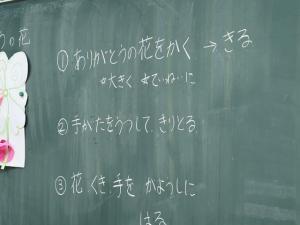 うの花
①ありがとうの花をかく → きる
☆大きく ☆ていねいに
②手がたをうつして、きりとる
③花、くき、手を がようしに
はる